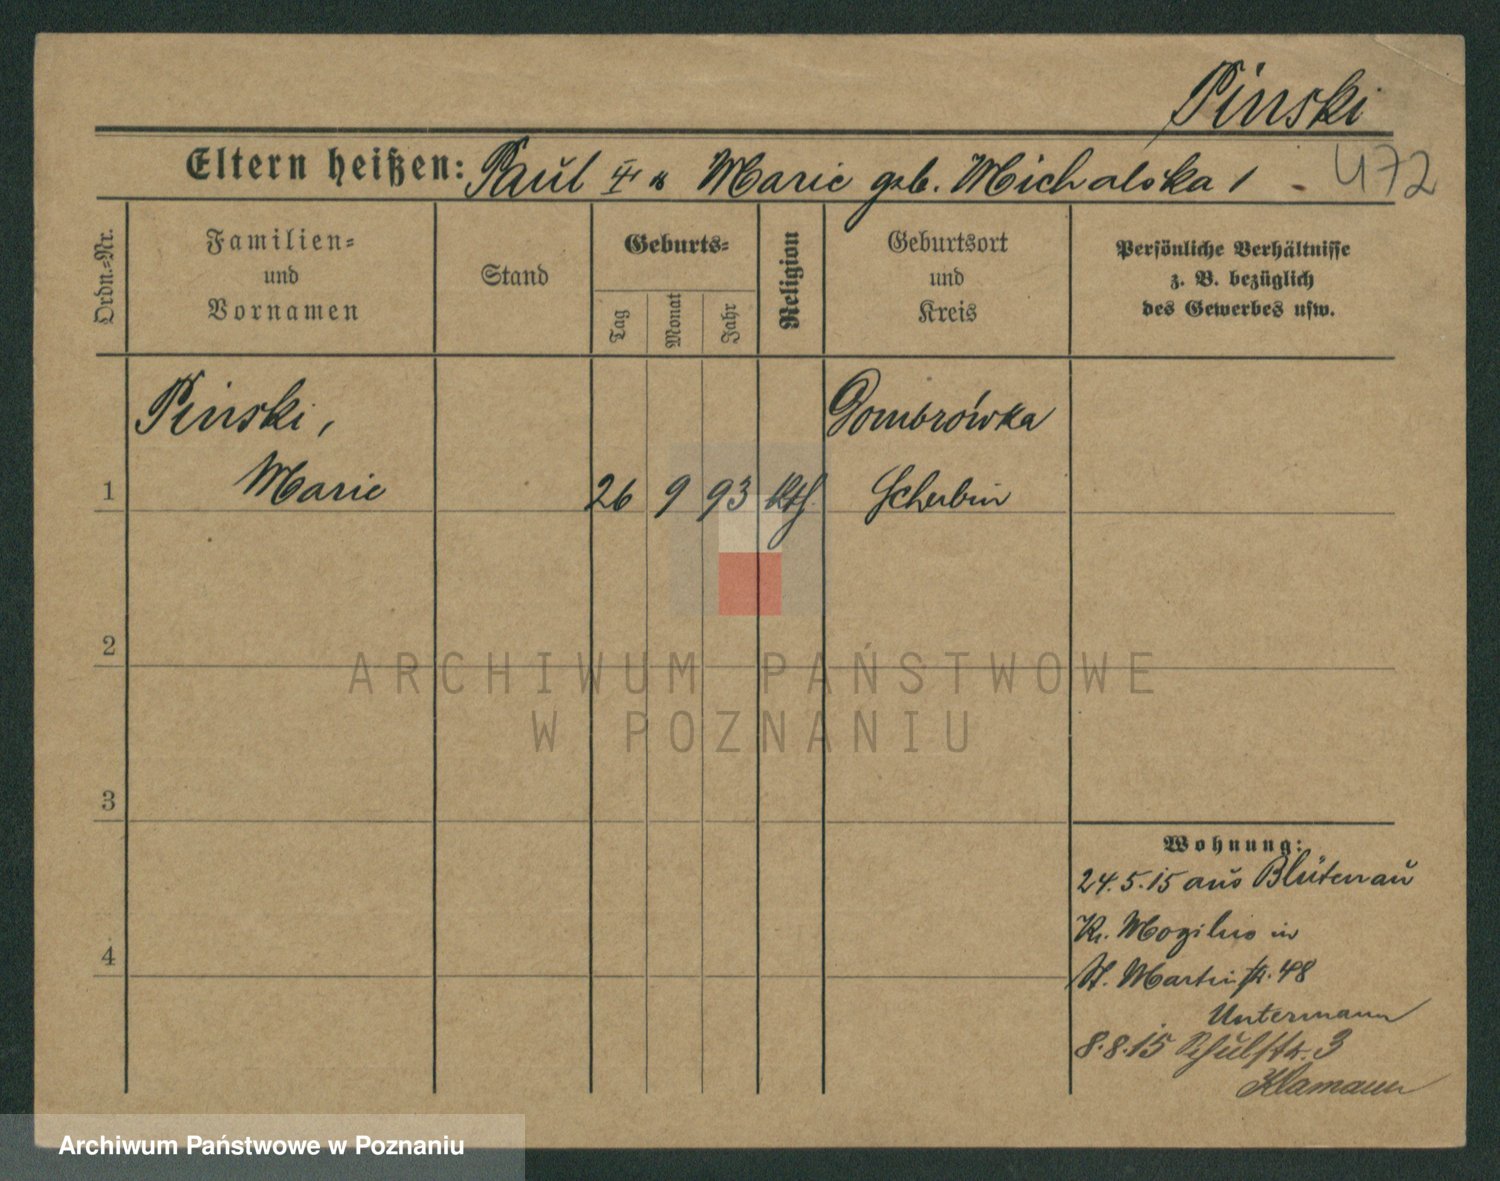 Pinski
Eltern heißen: Paul u Marie geb. Michalska
472
Ordn.-Nr.
Familien-
und
Vornamen
Stand
Geburts-
Tag
Monat
Jahr
Religion
Geburtsort
und
Kreis
Persönliche Verhältnisse
z. B. bezüglich
des Gewerbes usw.
Pinski,
Dombrówka
1 Marie 26 9 93 Kth. Schubin
2
3
4
Wohnung:
24.5.15 aus Blütenau
Kr. Mogilno in
St. Martinstr. 48
Untermann
8.8.15 Schulstr. 3
Klamann
ARCHIWUM PAŃSTWOWE
W POZNANIU
Archiwum Państwowe w Poznaniu